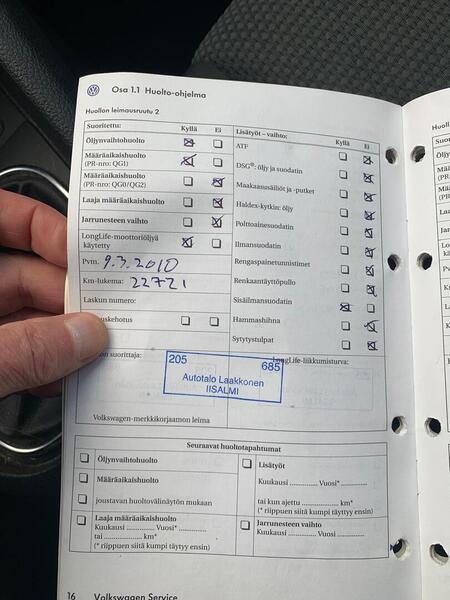 Osa 1.1 Huolto-ohjelma
Huollon leimausruutu 2
Suoritettu: Kyllä Ei
Öljynvaihtohuolto
Määräaikaishuolto
(PR-nro: QG1)
Määräaikaishuolto
(PR-nro: QG0/QG2)
Laaja määräaikaishuolto
Jarrunesteen vaihto
LongLife-moottoriöljyä
käytetty
Pvm. 9.3.2010
Km-lukema: 22721
Laskun numero:
uskehotus
on suorittaja:
Lisätyöt – vaihto: Kyllä Ei
ATF
DSG®: öljy ja suodatin
Maakaasusäiliöt ja -putket
Haldex-kytkin: öljy
Polttoainesuodatin
Ilmansuodatin
Rengaspainetunnistimet
Renkaantäyttöpullo
Sisäilmansuodatin
Hammashihna
Sytytystulpat
LongLife-liikkumisturva:
205 685
Autotalo Laakkonen
IISALMI
Volkswagen-merkkikorjaamon leima
Seuraavat huoltotapahtumat
Öljynvaihtohuolto
Määräaikaishuolto
joustavan huoltovälinäytön mukaan
Laaja määräaikaishuolto
Kuukausi .......... Vuosi* ..........
tai .......... km*
(* riippuen siitä kumpi täytyy ensin)
Lisätyöt
Kuukausi .......... Vuosi* ..........
tai kun ajettu .......... km*
(* riippuen siitä kumpi täyttyy ensin)
Jarrunesteen vaihto
Kuukausi .......... Vuosi ..........
16 Volkswagen Service